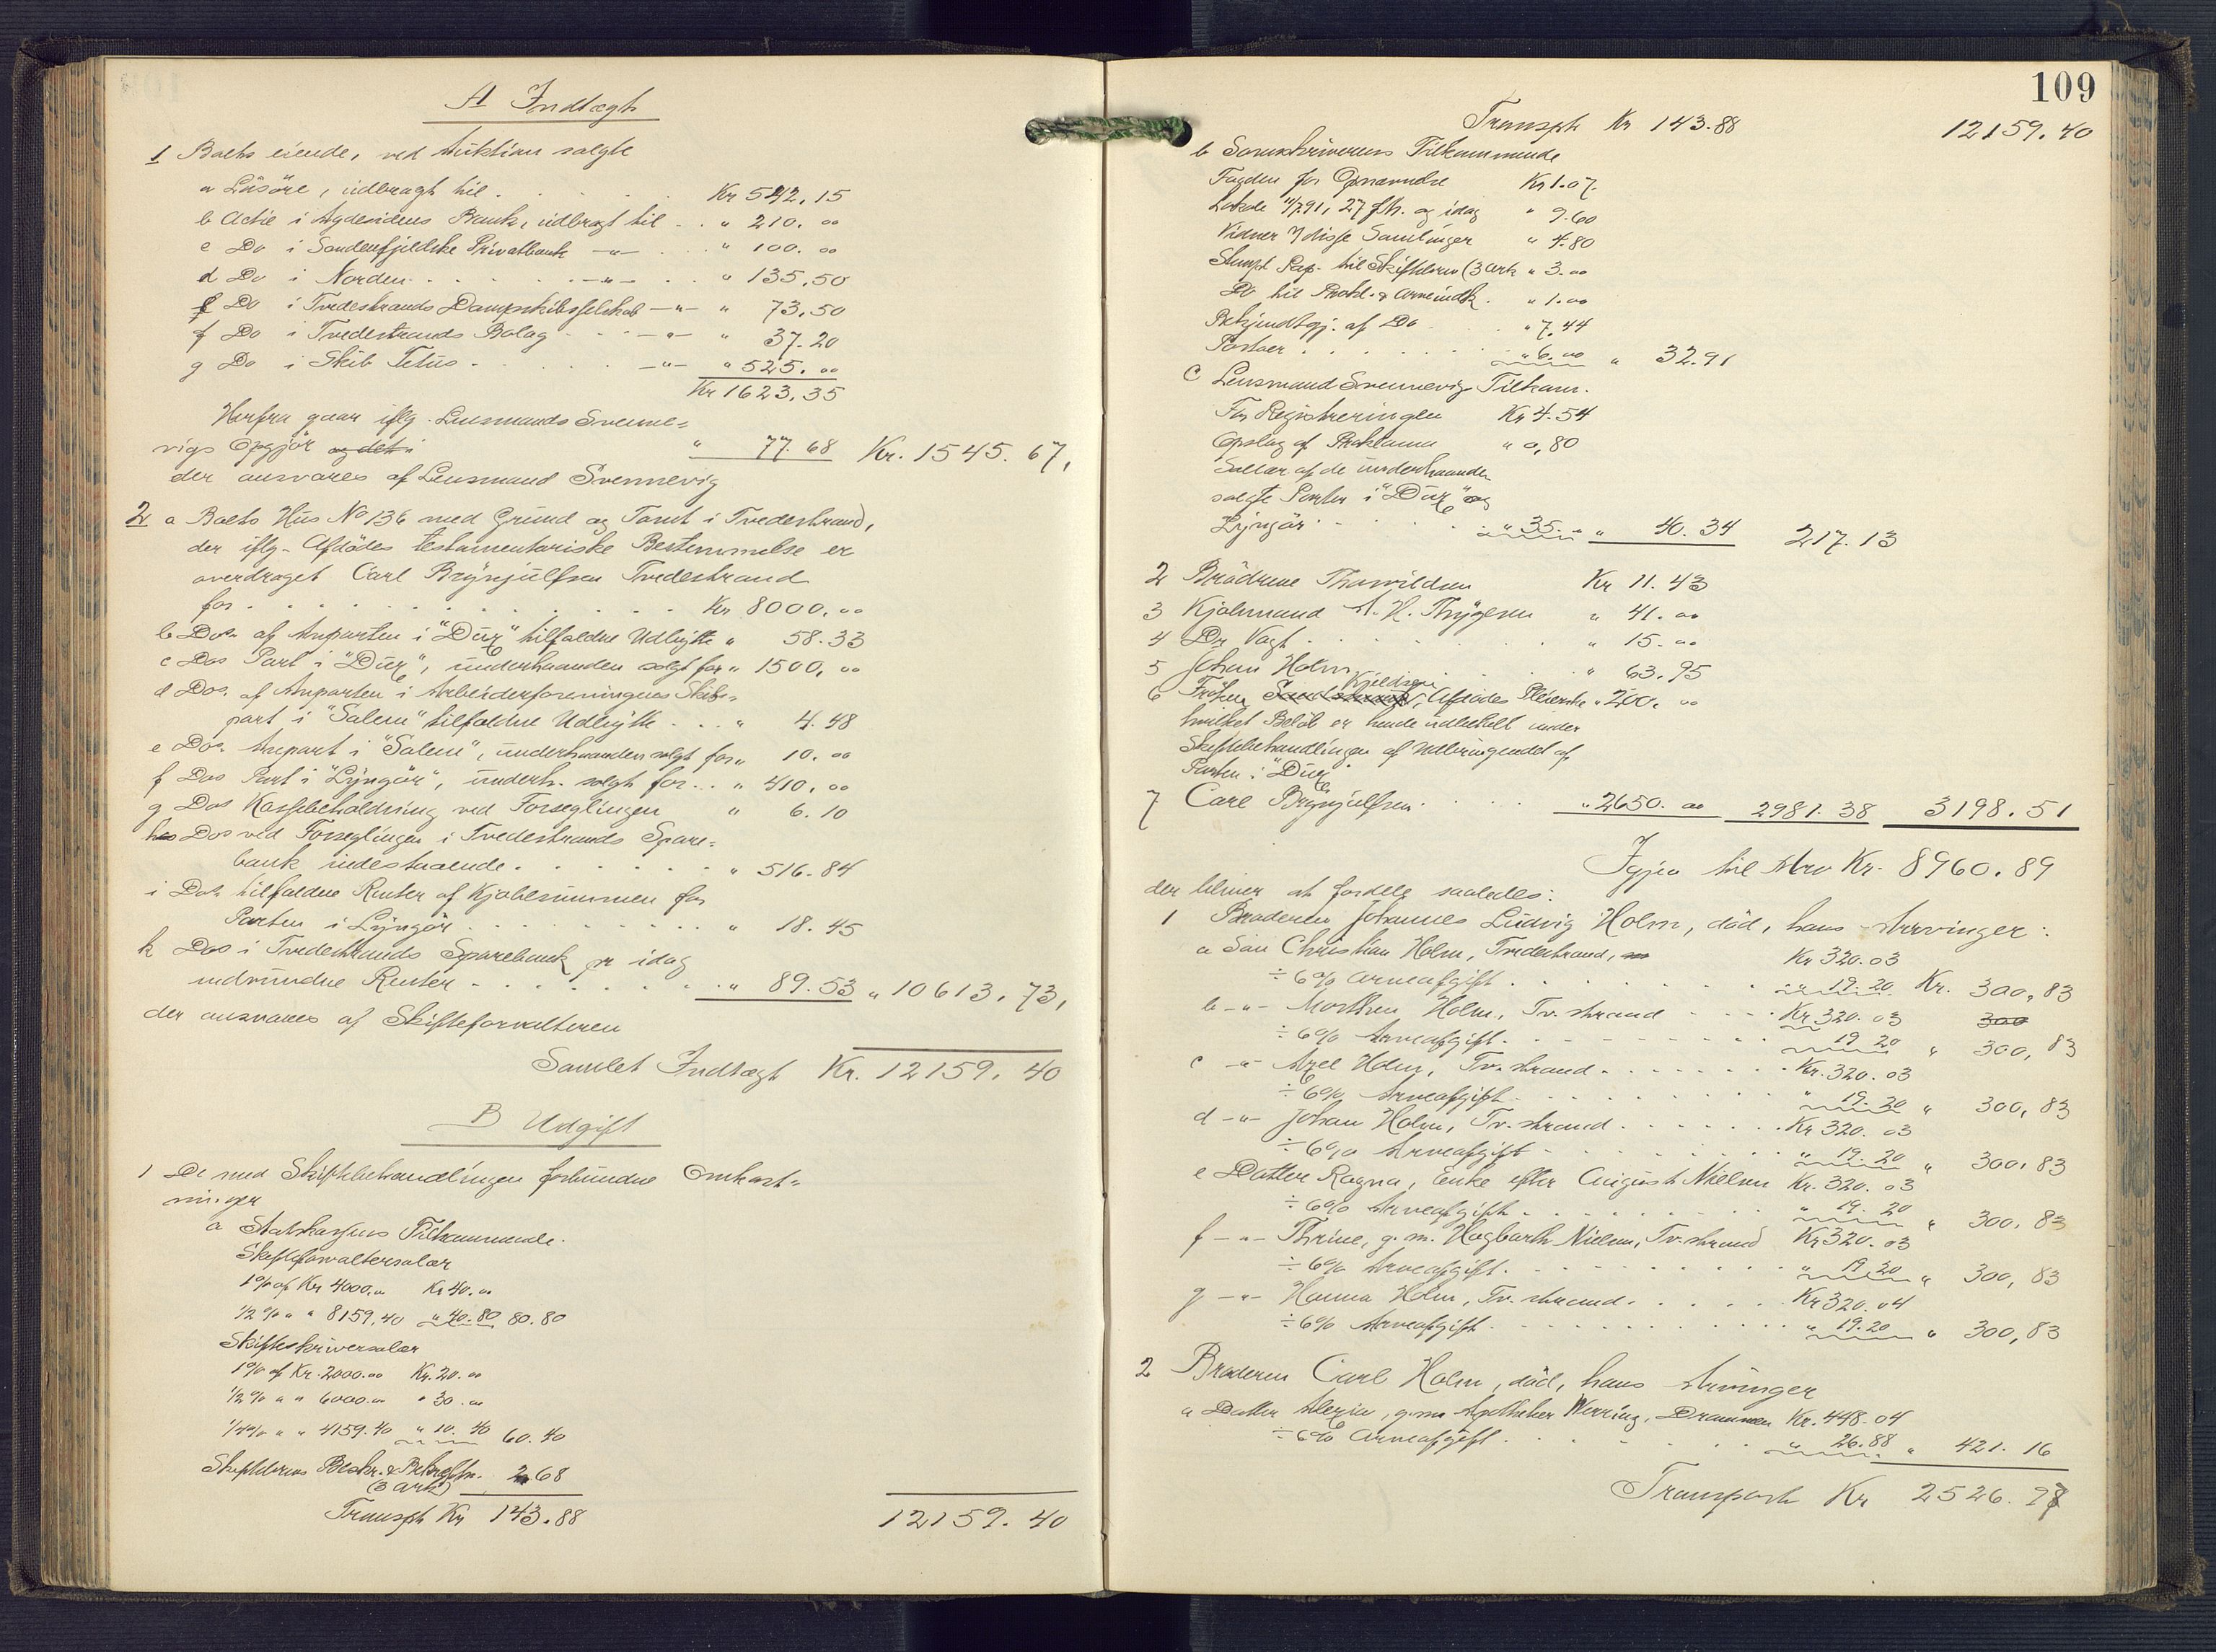 A Indtægt
1 Boets eiende, ved Auktion solgte
a Lösöre, udbragt til . . . . . Kr 542,15
b Actie i Agdesidens Bank, udbragt til . . " 210. 00
c Do i Søndenfjeldske Privatbank —"— . . " 100. 00
d Do i Norden . . . . —"— . . " 135,50
e Do i Tvedestrands Dampskibsselskab —"— " 73,50
f Do i Tvedestrands Bolag . . . —"— " 37.20
g Do i Skib Tetus . . . . . —"— " 525. 00
Kr 1623,35
Herfra gaar iflg. Lensmand Svenne-
vigs Opgjör og det i " 77.68 Kr. 1545. 67,
der ansvares af Lensmand Svennevig
2 a Boets Hus No 136 med Grund og Tomt i Tvedestrand,
der iflg. Afdödes testamentariske Bestemmelse er
overdraget Carl Brynjulfsen Tvedestrand
for . . . . . . . . . . . . . Kr 8000, 00
b Dos af Anparten i "Dux" tilfaldne Udbytte " 58.33
c Dos Part i "Dux", underhaanden solgt for " 1500, 00
d Dos. af Anparten i Arbeiderforeningens Skibs-
part i "Salem" tilfaldne Udbytte . . . " 4.48
e Dos Anpart i "Salem", underhaanden solgt for " 10. 00
f Dos Part i "Lyngör", underh. solgt for . . " 410, 00
g Dos Kassebeholdning ved Forseglingen " 6.10
h Dos ved Forseglingen i Tvedestrands Spare-
bank indestaaende . . . . . . . " 516.84
i Dos tilfaldne Renter af Kjøbesummen for
Parten i Lyngör . . . . . . . . . " 18.45
k Dos i Tvedestrands Sparebank pr idag
indvundne Renter . . . . . . . . " 89.53 " 10613,73,
der ansvares af Skifteforvalteren
Samlet Indtægt Kr. 12159. 40
B Udgift
1 De med Skiftebehandlingen forbundne Omkost-
ninger
a Statskassens Tilkommende.
Skifteforvaltersalær
1% af Kr 4000.00 Kr 40.00
1/2 % " " 8159.40 " 40.80 80.80
Skifteskriversalær
1% af Kr. 2000.00 Kr. 20.00
1/2 % " " 6000.00 " 30.00
1/4% " " 4159.40 " 10.40 60.40
Skifteforvs Beskr. & Bekræftn. 2.68
(3 ark)
Transpt Kr 143.88 12159.40
109
Transpt Kr 143.88 12159.40
b Sorenskriverens Tilkommende
Fogden for Opnævnelse Kr 1.07
Lokale 4/7 91, 27 f.M. og idag " 9.60
Vidner i disse Samlinger " 4.80
Stempl. Pap. til Skiftebrev (3 ark " 3.00
Do til Prokl. & Arveindk. . " 1.00
Bekjendtgj. af Do . . . " 7.44
Portoer . . . . . . " 6.00 " 32.91
c Lensmand Svennevigs Tilkom.
For Registreringen Kr 4.54
Opslag af Proklama " 0,80
Sallær af de underhaanden
solgte Parter i "Dux" og
Lyngör . . . . . . " 35.– " 40.34 217.13
2 Brödrene Thorvildsen Kr 11.43
3 Kjøbmand A. H. Thygesen " 41.00
4 Dr Vogt . . . . . . . . " 15.00
5 Johan Holm . . . . . . " 63.95
Kjeldsen
6 Frøken , Afdødes Pleierske " 200. 00
hvilket Beløb er hende udbetalt under
Skiftebehandlingen af Udbringendet af
Parten i "Dux"
7 Carl Brynjulfsen . . . . " 2650.00 2981.38 3198.51
Igjen til Arv Kr. 8960.89
der bliver at fordele saaledes:
1 Broderen Johannes Ludvig Holm, död, hans Arvinger:
a Sön Christian Holm, Tvedestrand, Kr 320.03
÷ 6% Arveafgift . . . . . . . " 19.20 Kr. 300,83
b —"— Morthen Holm, Tv.strand . . . . Kr 320.03 300
÷ 6% Arveafgift . . . . . . . " 19 20 " 300,83
c —"— Axel Holm, Tv.strand . . . . . . Kr. 320.03
÷ 6% Arveafgift . . . . . . . " 19.20 " 300,83
d —"— Johan Holm, Tv.strand . . . . . . Kr 320.03
÷ 6% Arveafgift . . . . . . . " 19.20 " 300,83
e Datter Ragna, Enke efter August Nielsen Kr. 320.03
÷ 6% Arveafgift . . . . . . . " 19.20 " 300,83
f —"— Thrine, g. m. Hagbarth Nielsen, Tv.strand Kr 320.03
÷ 6% Arveafgift . . . . . . . " 19 20 " 300,83
g —"— Hanna Holm, Tv.strand . . . . . Kr 320.04
÷ 6% Arveafgift . . . . . . . " 19.20 " 300,83
2 Broderen Carl Holm, död, hans Arvinger
a Datter Alexia, g.m. Apotheker Werring, Drammen Kr. 448.04
÷ 6% Arveafgift . . . . . . . " 26.88 " 421.16
Transport Kr 2526.97